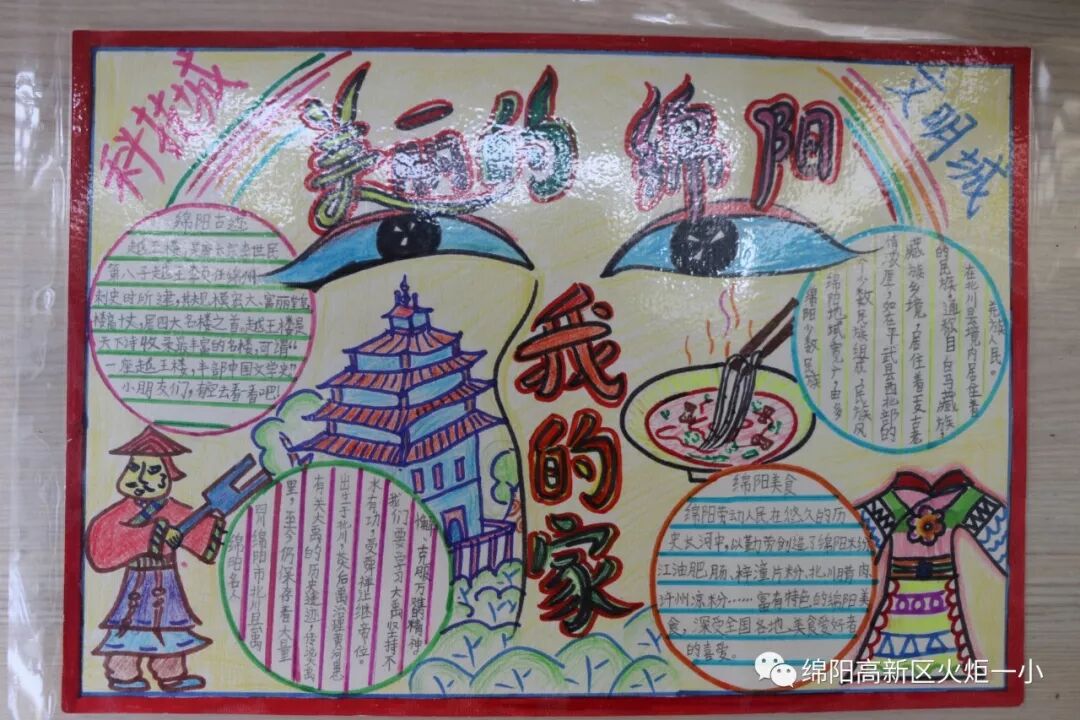 科技城
美丽的绵阳
文明城
我的家
绵阳古迹
越王楼,是唐太宗李世民
第八子越王李贞任绵州
刺史时所建,
楼高十丈,居四大名楼之首,越王楼是
天下诗收录最丰富的名楼,可谓“
一座越王楼,半部中国文学史”
小朋友们,有空去看看吧!
绵阳少数民族
绵阳地域宽广,由多
个少数民族组成,民族风
情浓厚,如在平武县西北部的
藏族乡境,居住着
的民族,通教目白马藏族,
在北川县境内居住着
羌族人民。
绵阳名人
四川绵阳市北川县是禹
里,至今仍保存着大量
有关大禹的历史遗迹,传说大禹
出生于北川,炎后禹治理黄河患
水有功,受舜禅让继帝位。
我们要学习大禹坚持不
懈、克服万难的精神。
绵阳美食
绵阳劳动人民在悠久的历
史长河中,以勤劳创造了绵阳米粉
江油肥肠、梓潼片粉、北川腊肉
许州凉粉……富有特色的绵阳美
食,深受全国各地美食爱好者
的喜爱。
绵阳高新区火炬一小